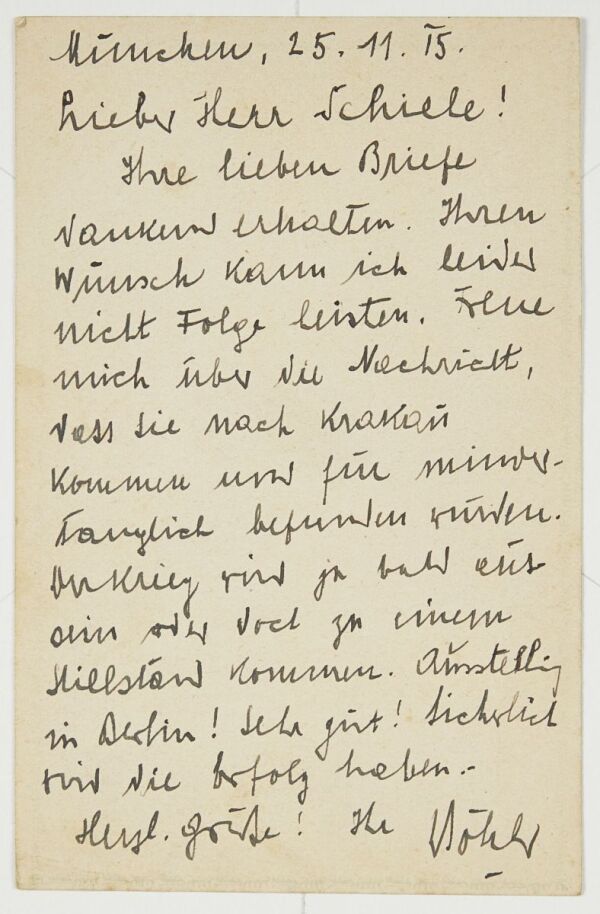 München, 25. 11. 15.
Lieber Herr Schiele!
Ihre lieben Briefe
dankend erhalten. Ihren
Wunsch kann ich leider
nicht Folge leisten. Freue
mich über die Nachricht,
dass Sie nach Krakau
kommen und für minder-
tauglich befunden wurden.
Der Krieg wird ja bald aus
sein oder doch zu einem
Stillstand kommen. Ausstellung
in Berlin! Sehr gut! Sicherlich
wird die Erfolg haben.-
Herzl. Grüße! Ihr Böhler